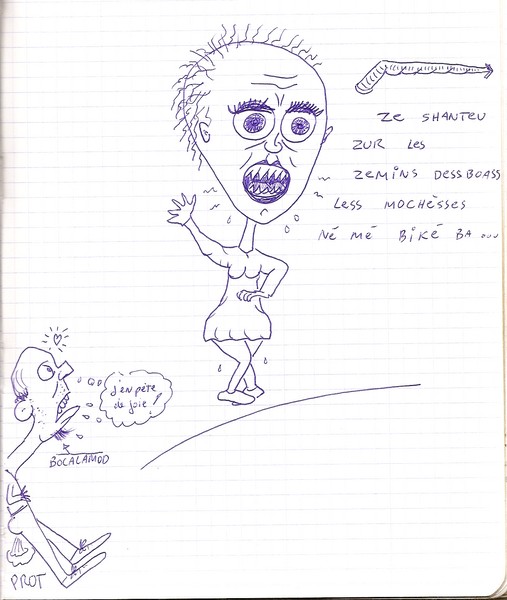 ZE SHANTEU
ZUR LES
ZEMINS DESSBOASS
LESS MOCHÈSSES
NÉ MÉ BIKÉ BA ...
j'en pète
de joie !
BOCALAMOD
PROT